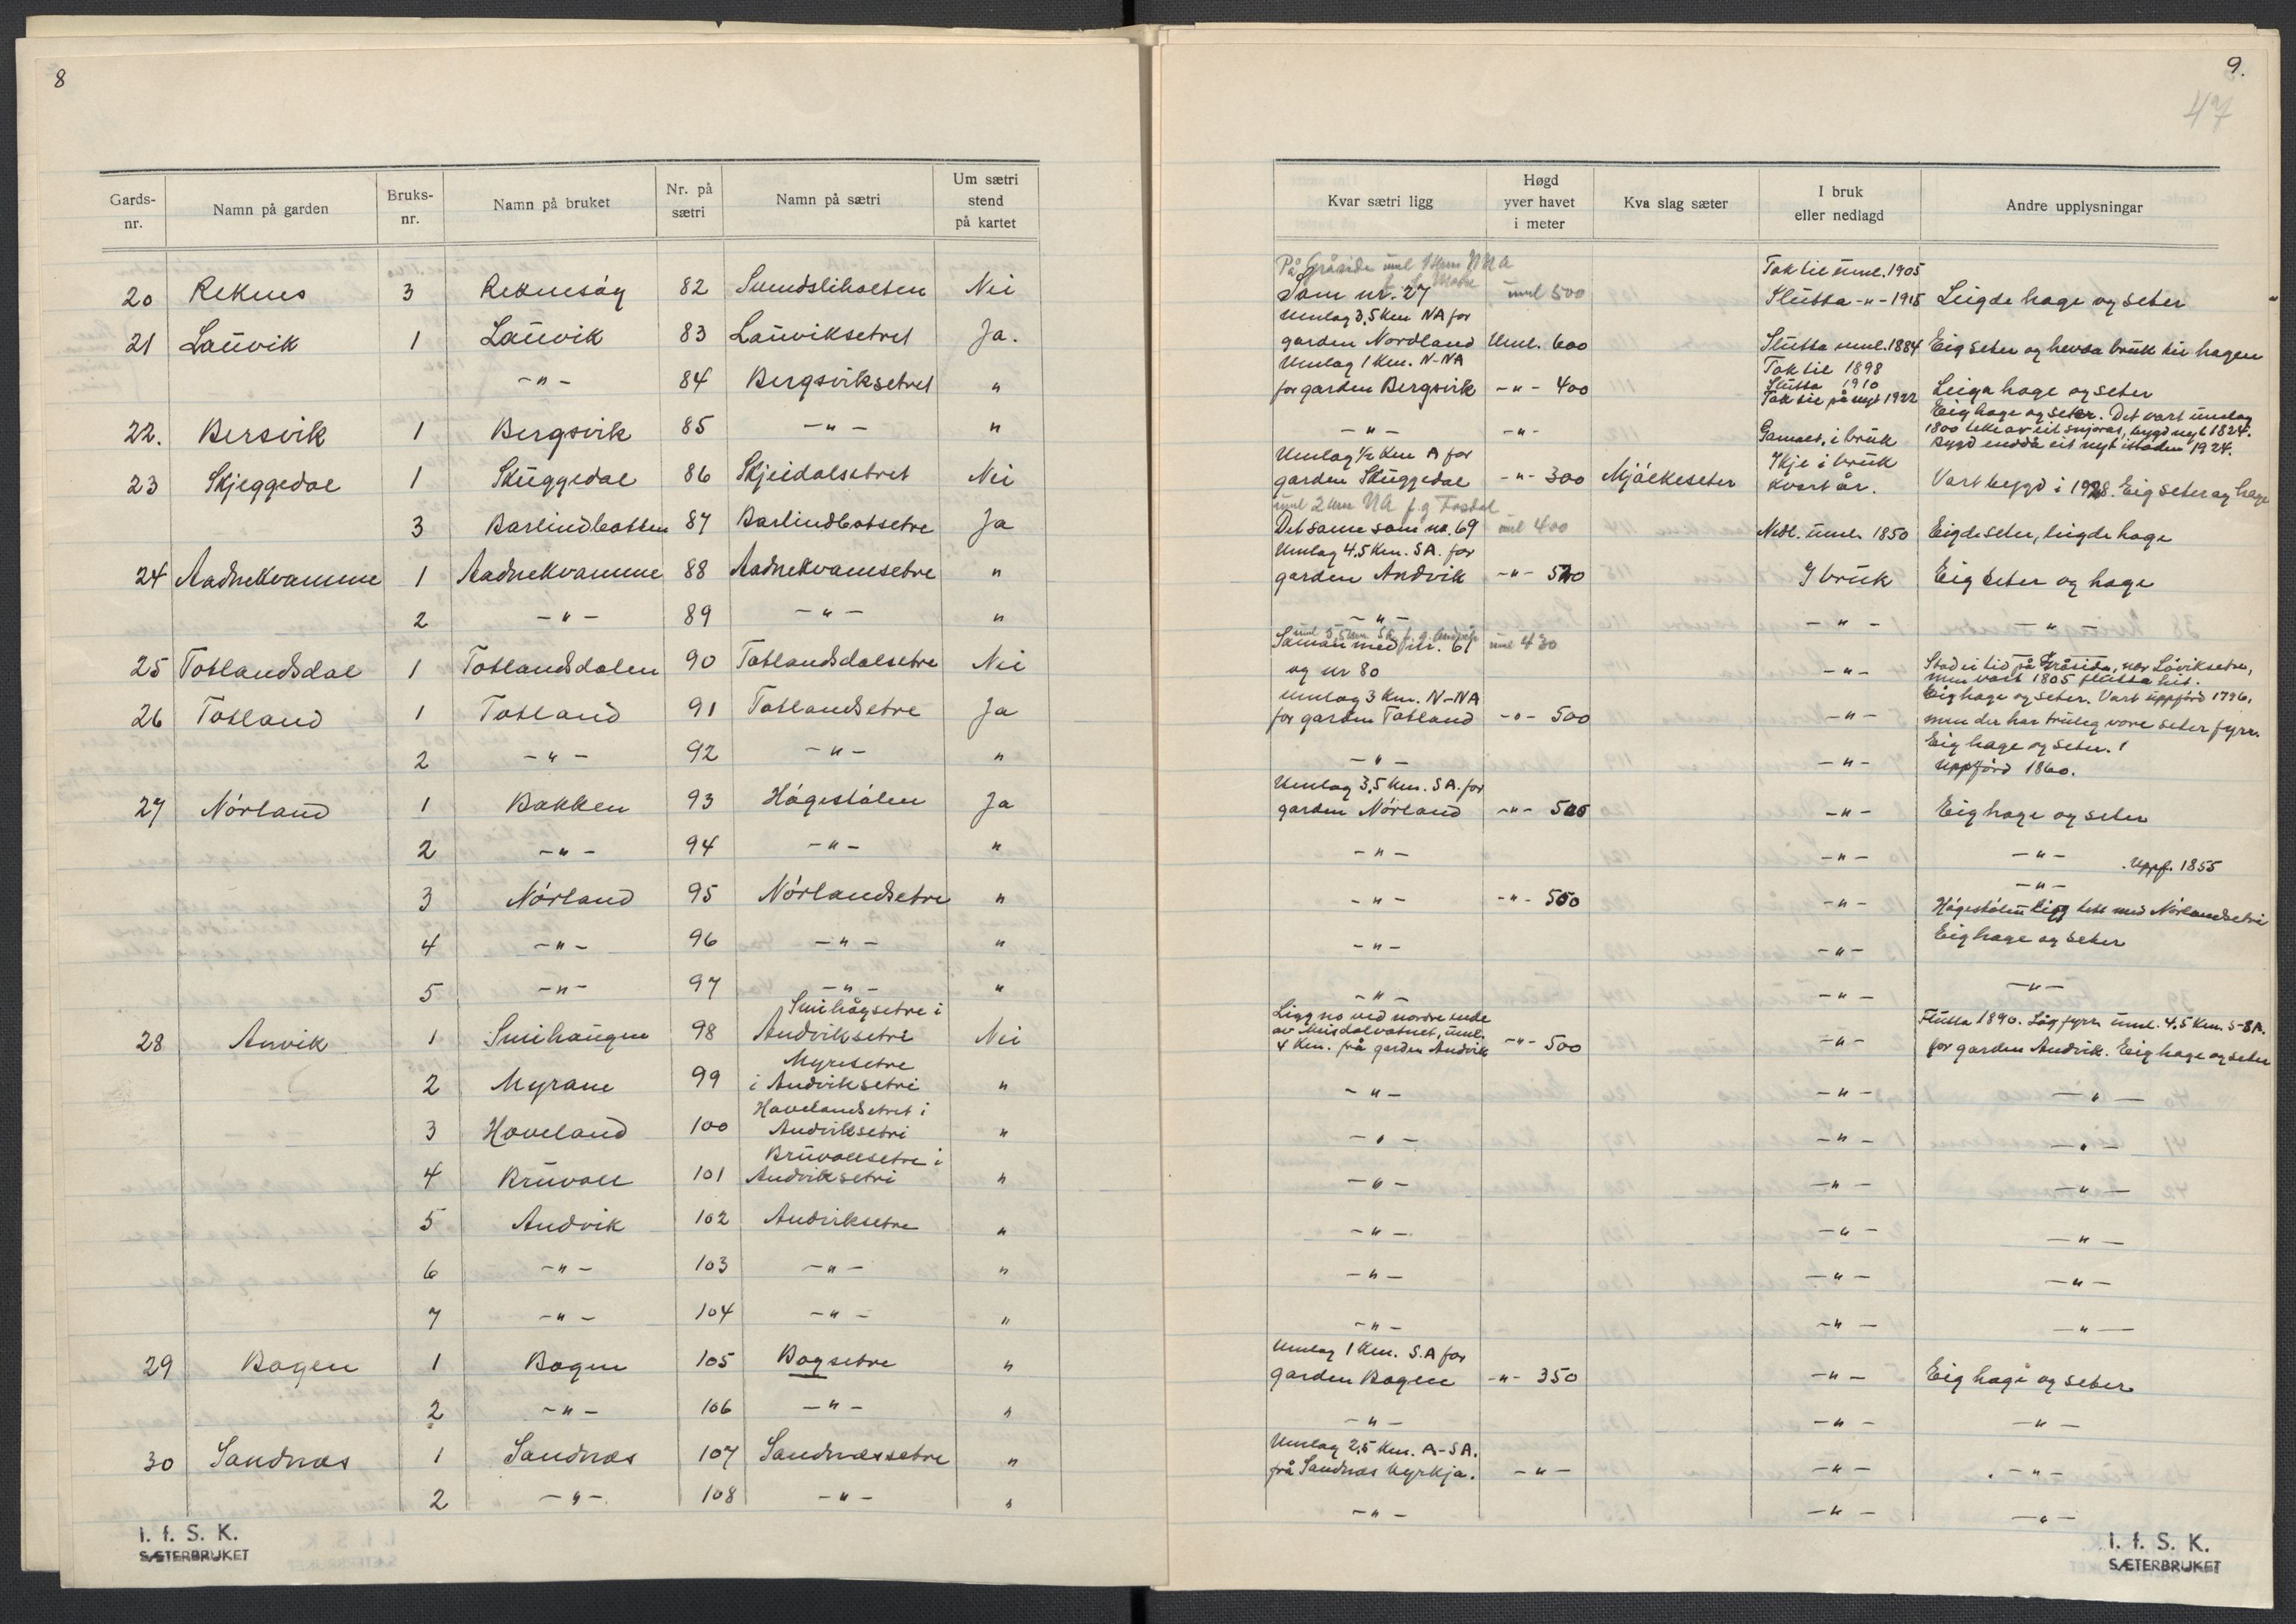 8
Gards-nr. Namn på garden Bruks-nr. Namn på bruket Nr. på sætri Namn på sætri Um sætri stend på kartet
20 Reknes 3 Reknesøy 82 Nei
21 Lauvik 1 Lauvik 83 Lauviksetret Ja.
-"- 84 Bergsviksetret "
22. Bersvik 1 Bergsvik 85 -"- "
23 Skjeggedal 1 Skuggedal 86 Skjeidalsetret Nei
3 Barlindbotten 87 Barlindbotsetre Ja
24 Aadnekvamme 1 Aadnekvamme 88 Aadnekvamsetre "
2 -"- 89 -"- "
25 Totlandsdal 1 Totlandsdalen 90 Totlandsdalsetre Nei
26 Totland 1 Totland 91 Totlandsetre Ja
2 -"- 92 -"- "
27 Nórland 1 Bakken 93 Högestölen Ja
2 -"- 94 -"- "
3 Nórland 95 Nórlandsetre "
4 -"- 96 -"- "
5 -"- 97 -"- "
Smihaugsetre i
28 Anvik 1 Smihaugen 98 Andviksetri Nei
Myresetre
2 Myrane 99 i Andviksetri "
Hovelandsetret i
3 Hoveland 100 Andviksetri "
Bruvollsetre i
4 Bruvoll 101 Andviksetri "
5 Andvik 102 Andviksetre "
6 -"- 103 -"- "
7 -"- 104 -"- "
29 Bogen 1 Bogen 105 Bogsetre "
2 -"- 106 -"- "
30 Sandnæs 1 Sandnæs 107 Sandnæssetre "
2 -"- 108 -"- "
I. f. S. K.
SÆTERBRUKET
9.
47
Kvar sætri ligg Høgd yver havet i meter Kva slag sæter I bruk eller nedlagd Andre upplysningar
På Gråsida uml
Tok til uml. 1905
Som nr. 27 uml 500 Slutta -"- 1915 Leigde hage og seter
Umlag 3,5 Km NA for
garden Nordland Uml. 600 Slutta uml. 1884 Eig seter og hevda bruk til hagen
Umlag 1 Km. N-NA Tok til 1898
for garden Bergsvik -"- 400 Slutta 1910 Leiga hage og seter
Tok til på nyt 1922
-"- -"- Gamalt, i bruk Eig hage og seter. Det vart umlag
1800 teke av eit snjoras, bygd nyt 1824.
Bygd endda eit nyt i staden 1924.
Umlag 1/2 Km A for Ikje i bruk
garden Skuggedal -"- 300 Mjólkeseter kvart år. Vart bygd i 1928. Eig seter og hage
uml 2 km NA f. g
Det same som nr. 69 uml 400 Nedl. uml. 1850 Eigde seter, leigde hage
Umlag 4,5 Km. SA. for
garden Andvik -"- 520 I bruk Eig seter og hage
-"- -"- -"-
uml 3,5 km SA f. g. Andvik
Saman med nr. 61 uml 430
og nr 80 -"- Stod ei tid på Gråsida, nær Lóviksetre,
men vart 1805 flutta hit.
Umlag 3 Km. N-NA Eig hage og seter. Vart uppförd 1796,
for garden Totland -"- 500 -"- men der har truleg vore seter fyrr.
-"- -"- Eig hage og seter.
Uppförd 1860.
Umlag 3,5 Km. SA. for
garden Nórland -"- 500 -"- Eig hage og seter
-"- -"- -"- Uppf. 1855
-"- -"- 500 -"- -"-
Högestölen ligg tett med Nórlandsetri
-"- -"- Eig hage og seter
-"- -"- -"-
Ligg no ved nordre ende
av Misdalvatnet, uml. Flutta 1890. Låg fyrr uml. 4,5 Km. S-SA.
4 Km. frå garden Andvik -"- 500 -"- for garden Andvik. Eig hage og seter
-"- -"- -"-
-"- -"- -"-
-"- -"- -"-
-"- -"- -"-
-"- -"- -"-
-"- -"- -"-
Umlag 1 Km. S.A for
garden Bogen -"- 350 -"- Eig hage og seter
-"- -"- -"-
Umlag 2,5 Km. A-SA.
frå Sandnæs kyrkja. -"- -"- -"-
-"- -"- -"-
I. f. S. K.
SÆTERBRUKET